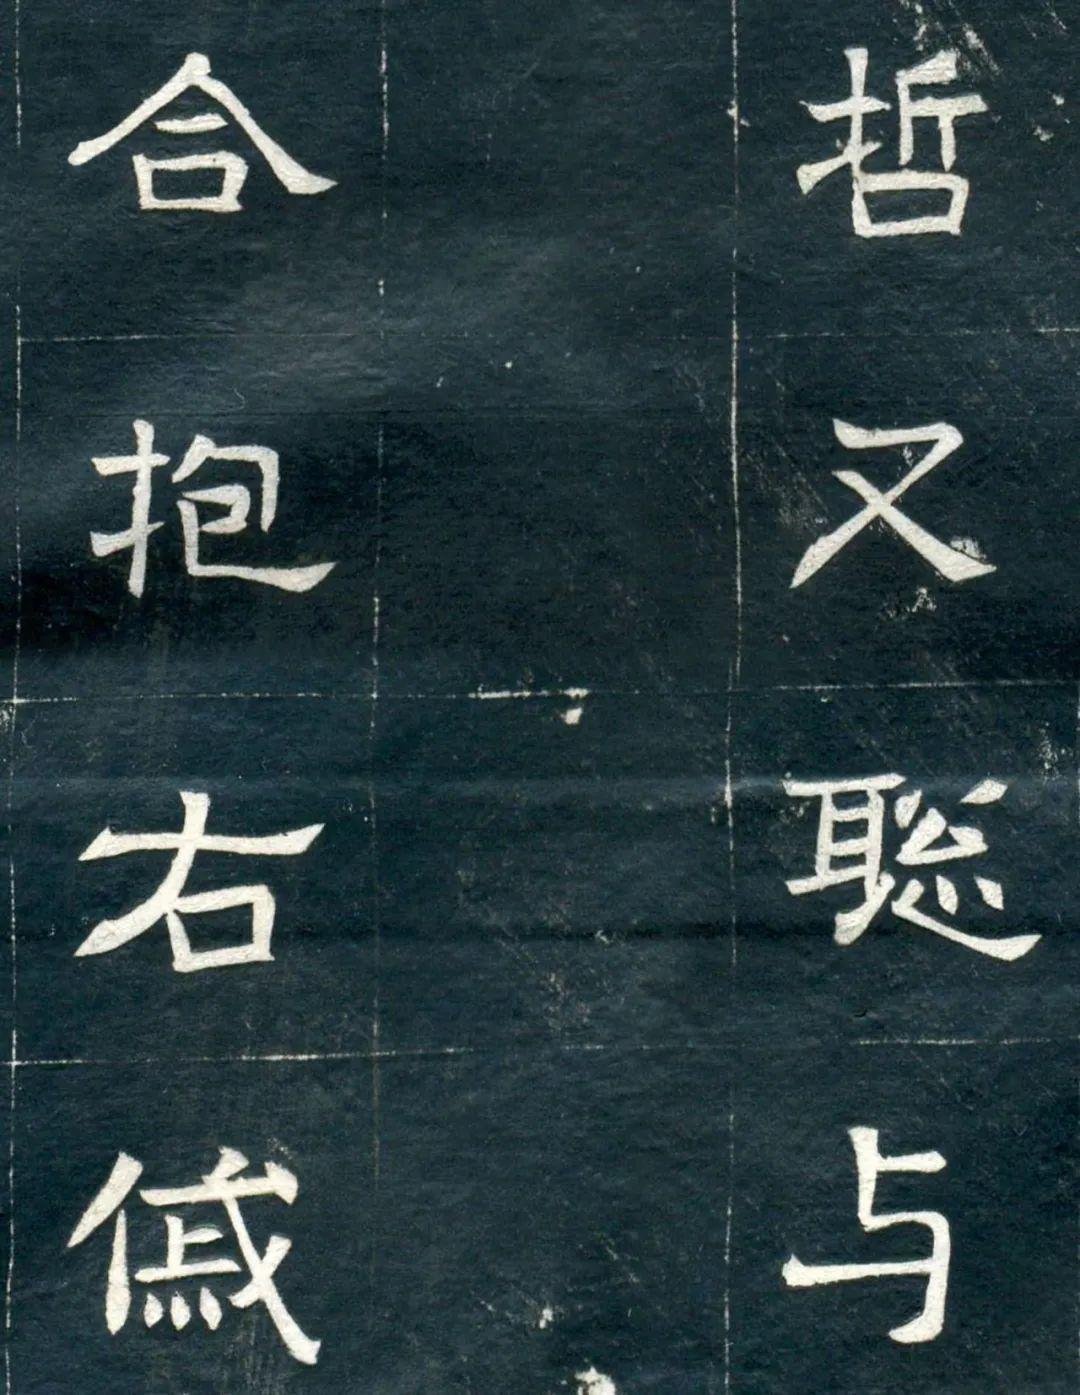 哲又聡与
合抱右傶